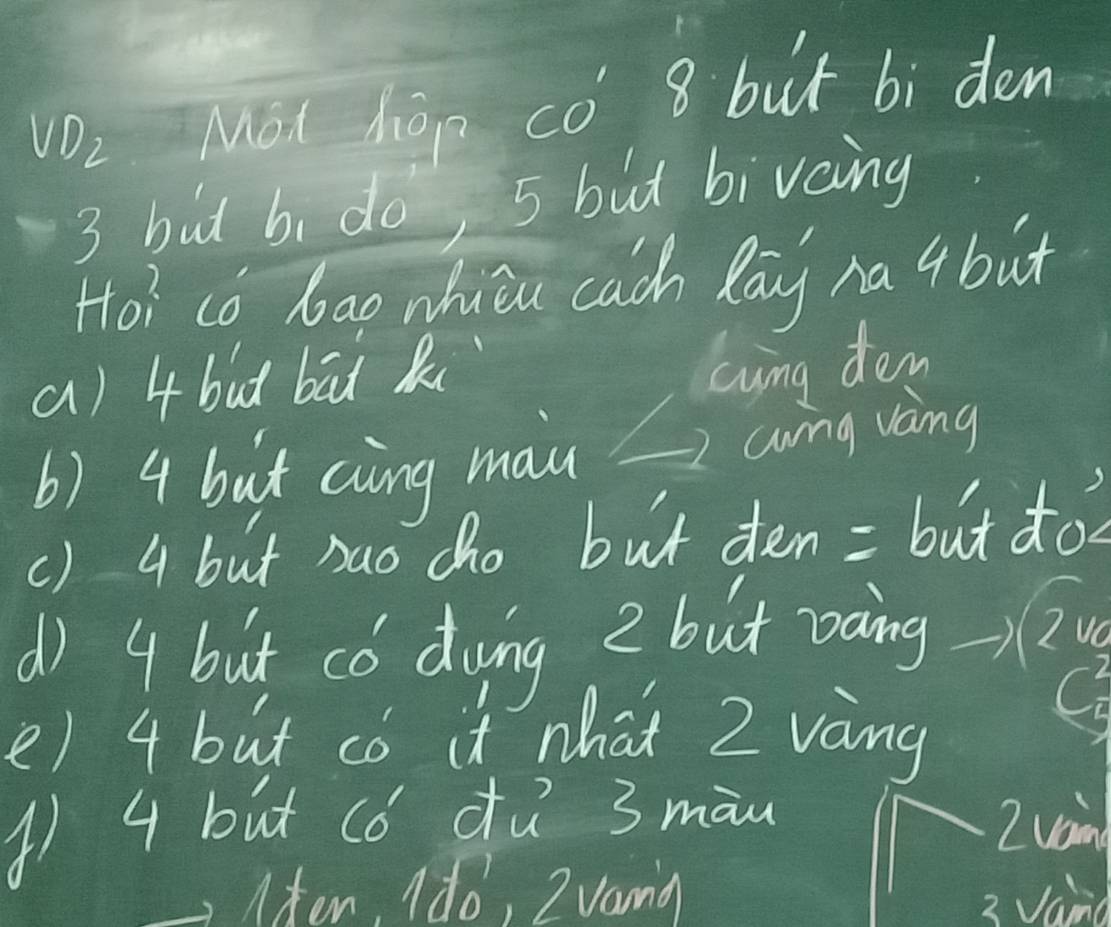 VD2. Một hộp có 8 bút bi đen
3 bút bi đỏ, 5 bút bi vàng.
Hỏi có bao nhiêu cách lấy ra 4 bút
a) 4 bút bất kì
cùng đen
b) 4 bút cùng màu → cùng vàng
c) 4 bút sao cho bút đen = bút đỏ
d) 4 bút có đúng 2 bút vàng → (2
C²₅
e) 4 bút có ít nhất 2 vàng
f) 4 bút có đủ 3 màu
2 vàng
→ 1 đen, 1 đỏ, 2 vàng
3 vàng